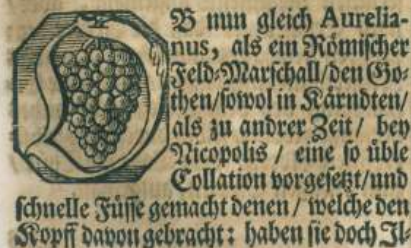 OB nun gleich Aurelia-
nus, als ein Römischer
Feld-Marschall/den Go-
then/sowol in Kärndten/
als zu andrer Zeit / bey
Nicopolis / eine so üble
Collation vorgesetzt/und
schnelle Füsse gemacht denen / welche den
Kopff davon gebracht: haben sie doch Jl-